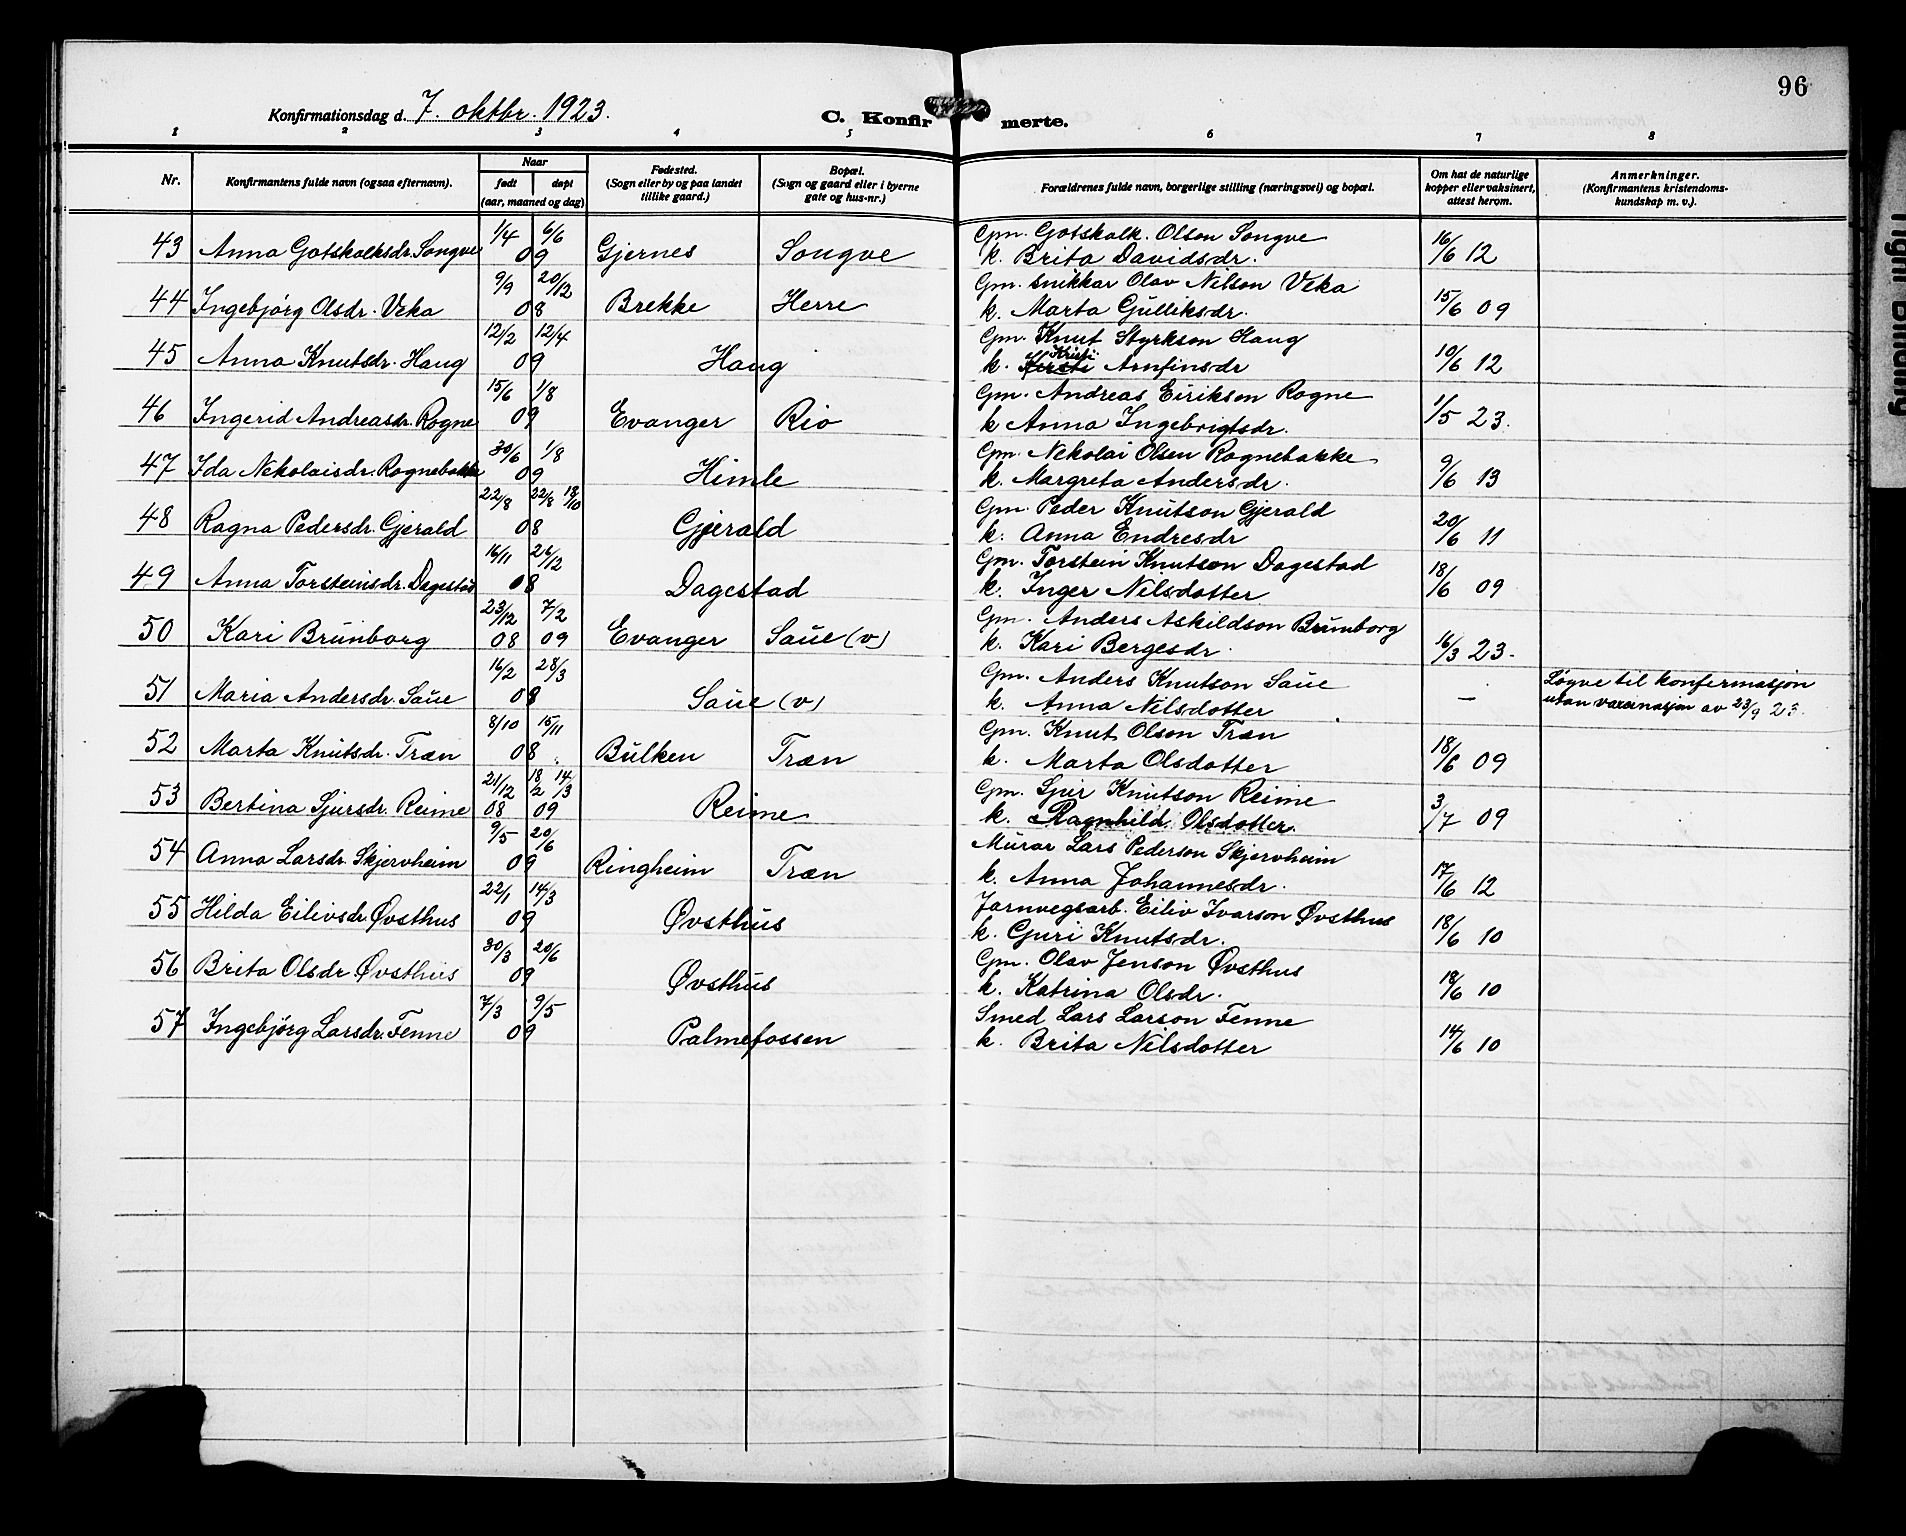 96
Konfirmationsdag d. 7. oktbr. 1923.
C. Konfirmerte.
1 2 3 4 5 6 7 8
Nr.
Konfirmantens fulde navn (ogsaa efternavn).
Naar
født døpt
(aar, maaned og dag)
Fødested.
(Sogn eller by og paa landet
tillike gaard.)
Bopæl.
(Sogn og gaard eller i byerne
gate og hus-nr.)
Forældrenes fulde navn, borgerlige stilling (næringsvei) og bopæl.
Om hat de naturlige
kopper eller vaksinert,
attest herom.
Anmerkninger.
(Konfirmantens kristendoms-
kundskap m. v.).
43 Anna Gotskalksdr. Songve 1/4 6/6 09 Gjernes Songve Gm. Gotskalk. Olson Songve
k. Brita Davidsdr. 16/6 12
44 Ingebjörg Olsdr. Veka 9/9 20/12 08 Brekke Herre Gm. snikkar Olav Nilson Veka
k. Marta Gulliksdr. 15/6 09
45 Anna Knutsdr. Haug 12/2 12/4 09 Haug Gm. Knut Styrkson Haug
k. Kirsti Kristi Arnfinsdr 10/6 12
46 Ingerid Andreasdr. Rogne 15/6 1/8 09 Evanger Rio Gm. Andreas Eirikson Rogne
k Anna Ingebrigtsdr. 1/5 23.
47 Ida Nekolaisdr. Rognebakke 30/6 1/8 09 Himle Gm. Nekolai Olsen Rognebakke
k. Margreta Andersdr. 9/6 13
48 Ragna Pedersdr. Gjerald 22/8 22/8 18/10 08 Gjerald Gm. Peder Knutson Gjerald
k. Anna Endresdr 20/6 11
49 Anna Torsteinsdr. Dagestad 16/11 26/12 08 Dagestad Gm. Torstein Knutson Dagestad
k. Inger Nilsdotter 18/6 09
50 Kari Brünborg 23/12 08 7/2 09 Evanger Saue (v) Gm. Anders Askildson Brunborg
k. Kari Bergesdr. 16/3 23.
51 Maria Andersdr. Saue 16/2 28/3 08 Saue (v) Gm. Anders Knutson Saue
k. Anna Nilsdotter —
Løyve til konfirmasjon
utan vaxinasjon av 23/9 23.
52 Marta Knutsdr. Træn 8/10 15/11 08 Bulken Træn Gm. Knut Olson Træn
k. Marta Olsdotter 18/6 09
53 Bertina Sjursdr. Reime 21/12 08 18/2 14/3 09 Reime Gm. Sjur Knutson Reime
k. Ragnhild Olsdotter. 3/7 09
54 Anna Larsdr. Skjervheim 9/5 20/6 09 Ringheim Træn Murar Lars Pederson Skjervheim
k. Anna Johannesdr. 17/6 12
55 Hilda Eilivsdr. Øvsthus 22/1 14/3 09 Øvsthus Jarnvegsarb. Eiliv Ivarson Øvsthus
k. Guri Knutsdr. 18/6 10
56 Brita Olsdr. Øvsthus 30/3 20/6 09 Øvsthus Gm. Olav Jenson Øvsthus
k. Katrina Olsdr. 18/6 10
57 Ingebjörg Larsdr. Fenne 7/3 9/5 09 Palmefossen Smed Lars Larson Fenne
k. Brita Nilsdotter 14/6 10
Tight Binding